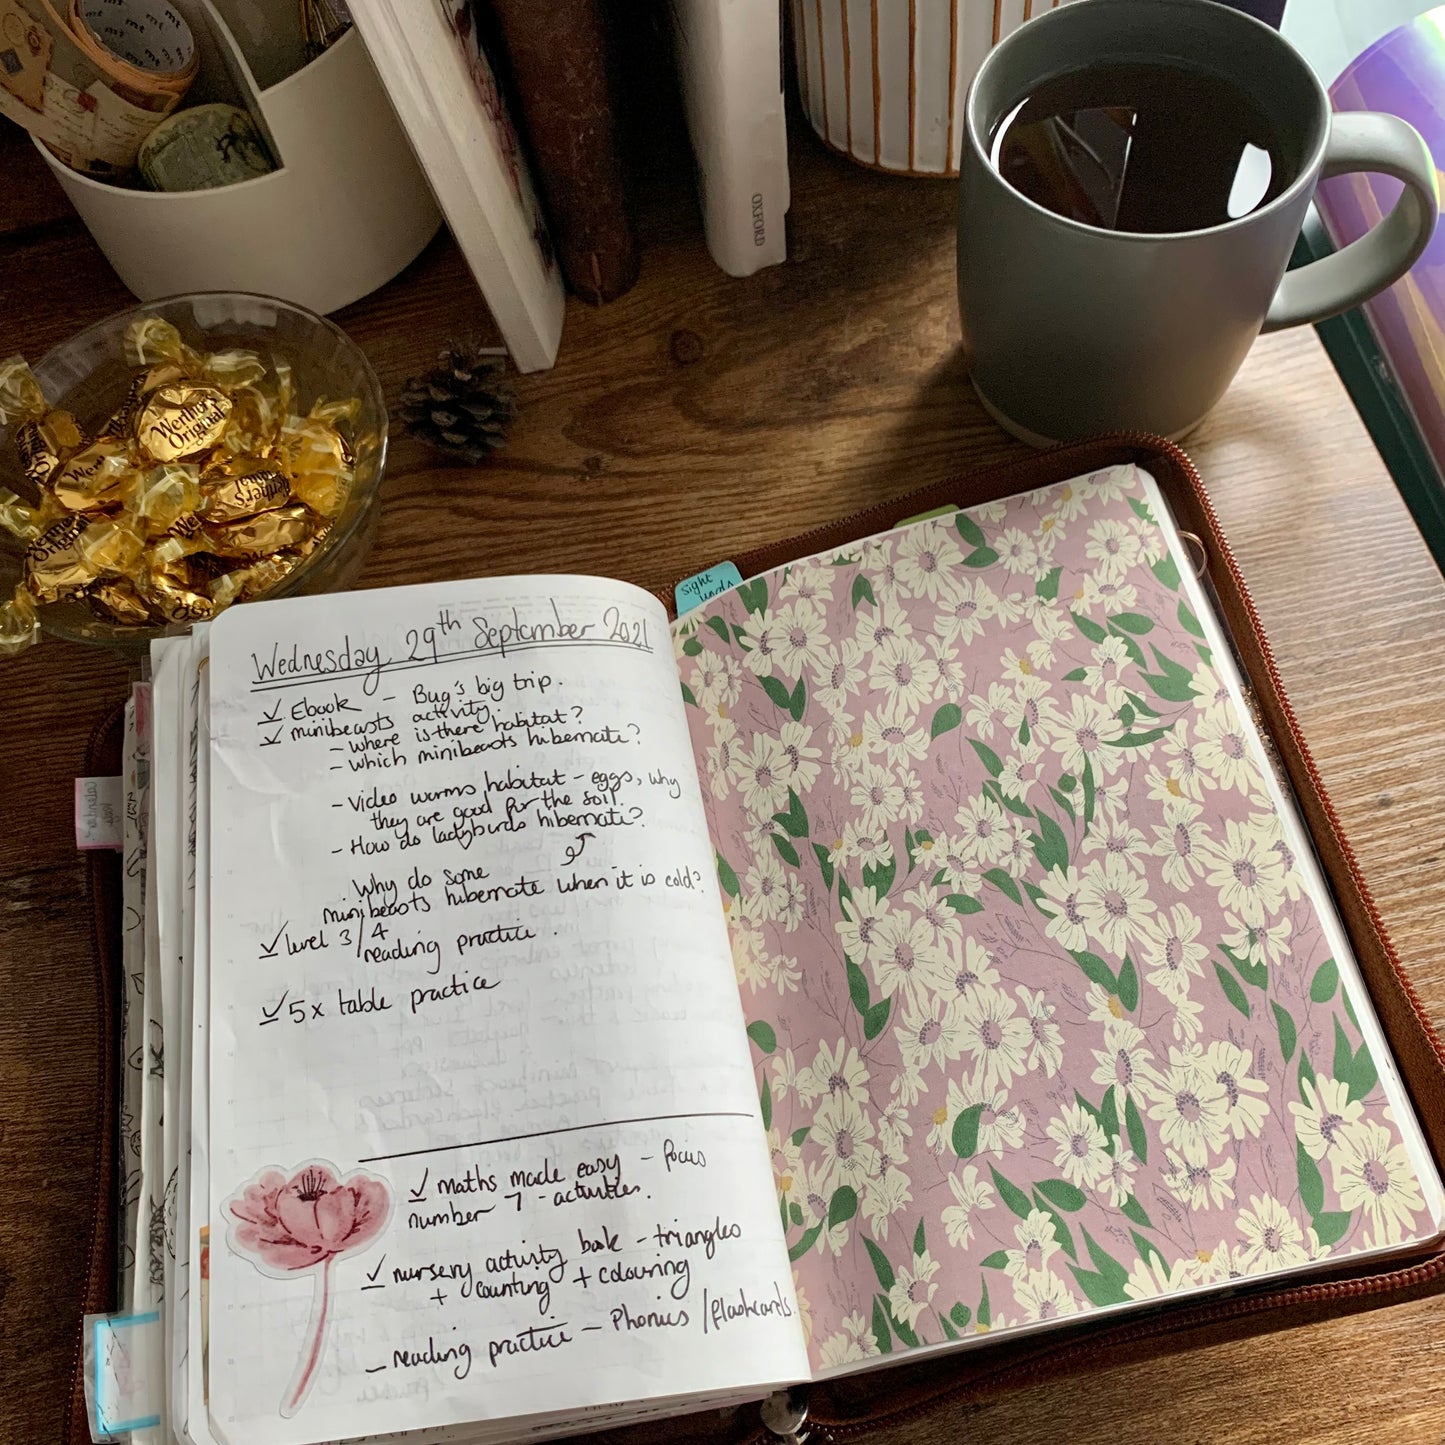 mt
mt
mt
OXFORD
Werther's
Original
Wert
Werther's
Original
sight
words
Wednesday 29th September 2021
✓ Ebook - Bug's big trip.
✓ minibeasts activity.
- where is there habitat?
- which minibeasts hibernate?
- video worms habitat - eggs, why
they are good for the soil.
- How do ladybirds hibernate?
Why do some
minibeasts hibernate when it is cold?
✓ level 3/4
reading practice.
✓ 5x table practice
✓ maths made easy - focus
number 7 - activities.
✓ nursery activity book - triangles
+ counting + colouring
- reading practice - Phonics / flashcards.